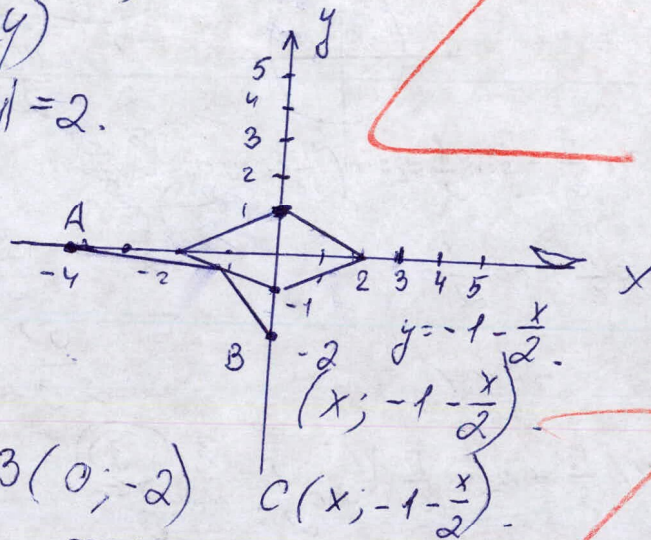 y)
y
5
4
| = 2.
3
2
1
A
-4
-2
2
3
4
5
x
-1
y = -1 - x/2.
B
-2
(x; -1 - x/2).
B(0; -2)
C(x; -1 - x/2).